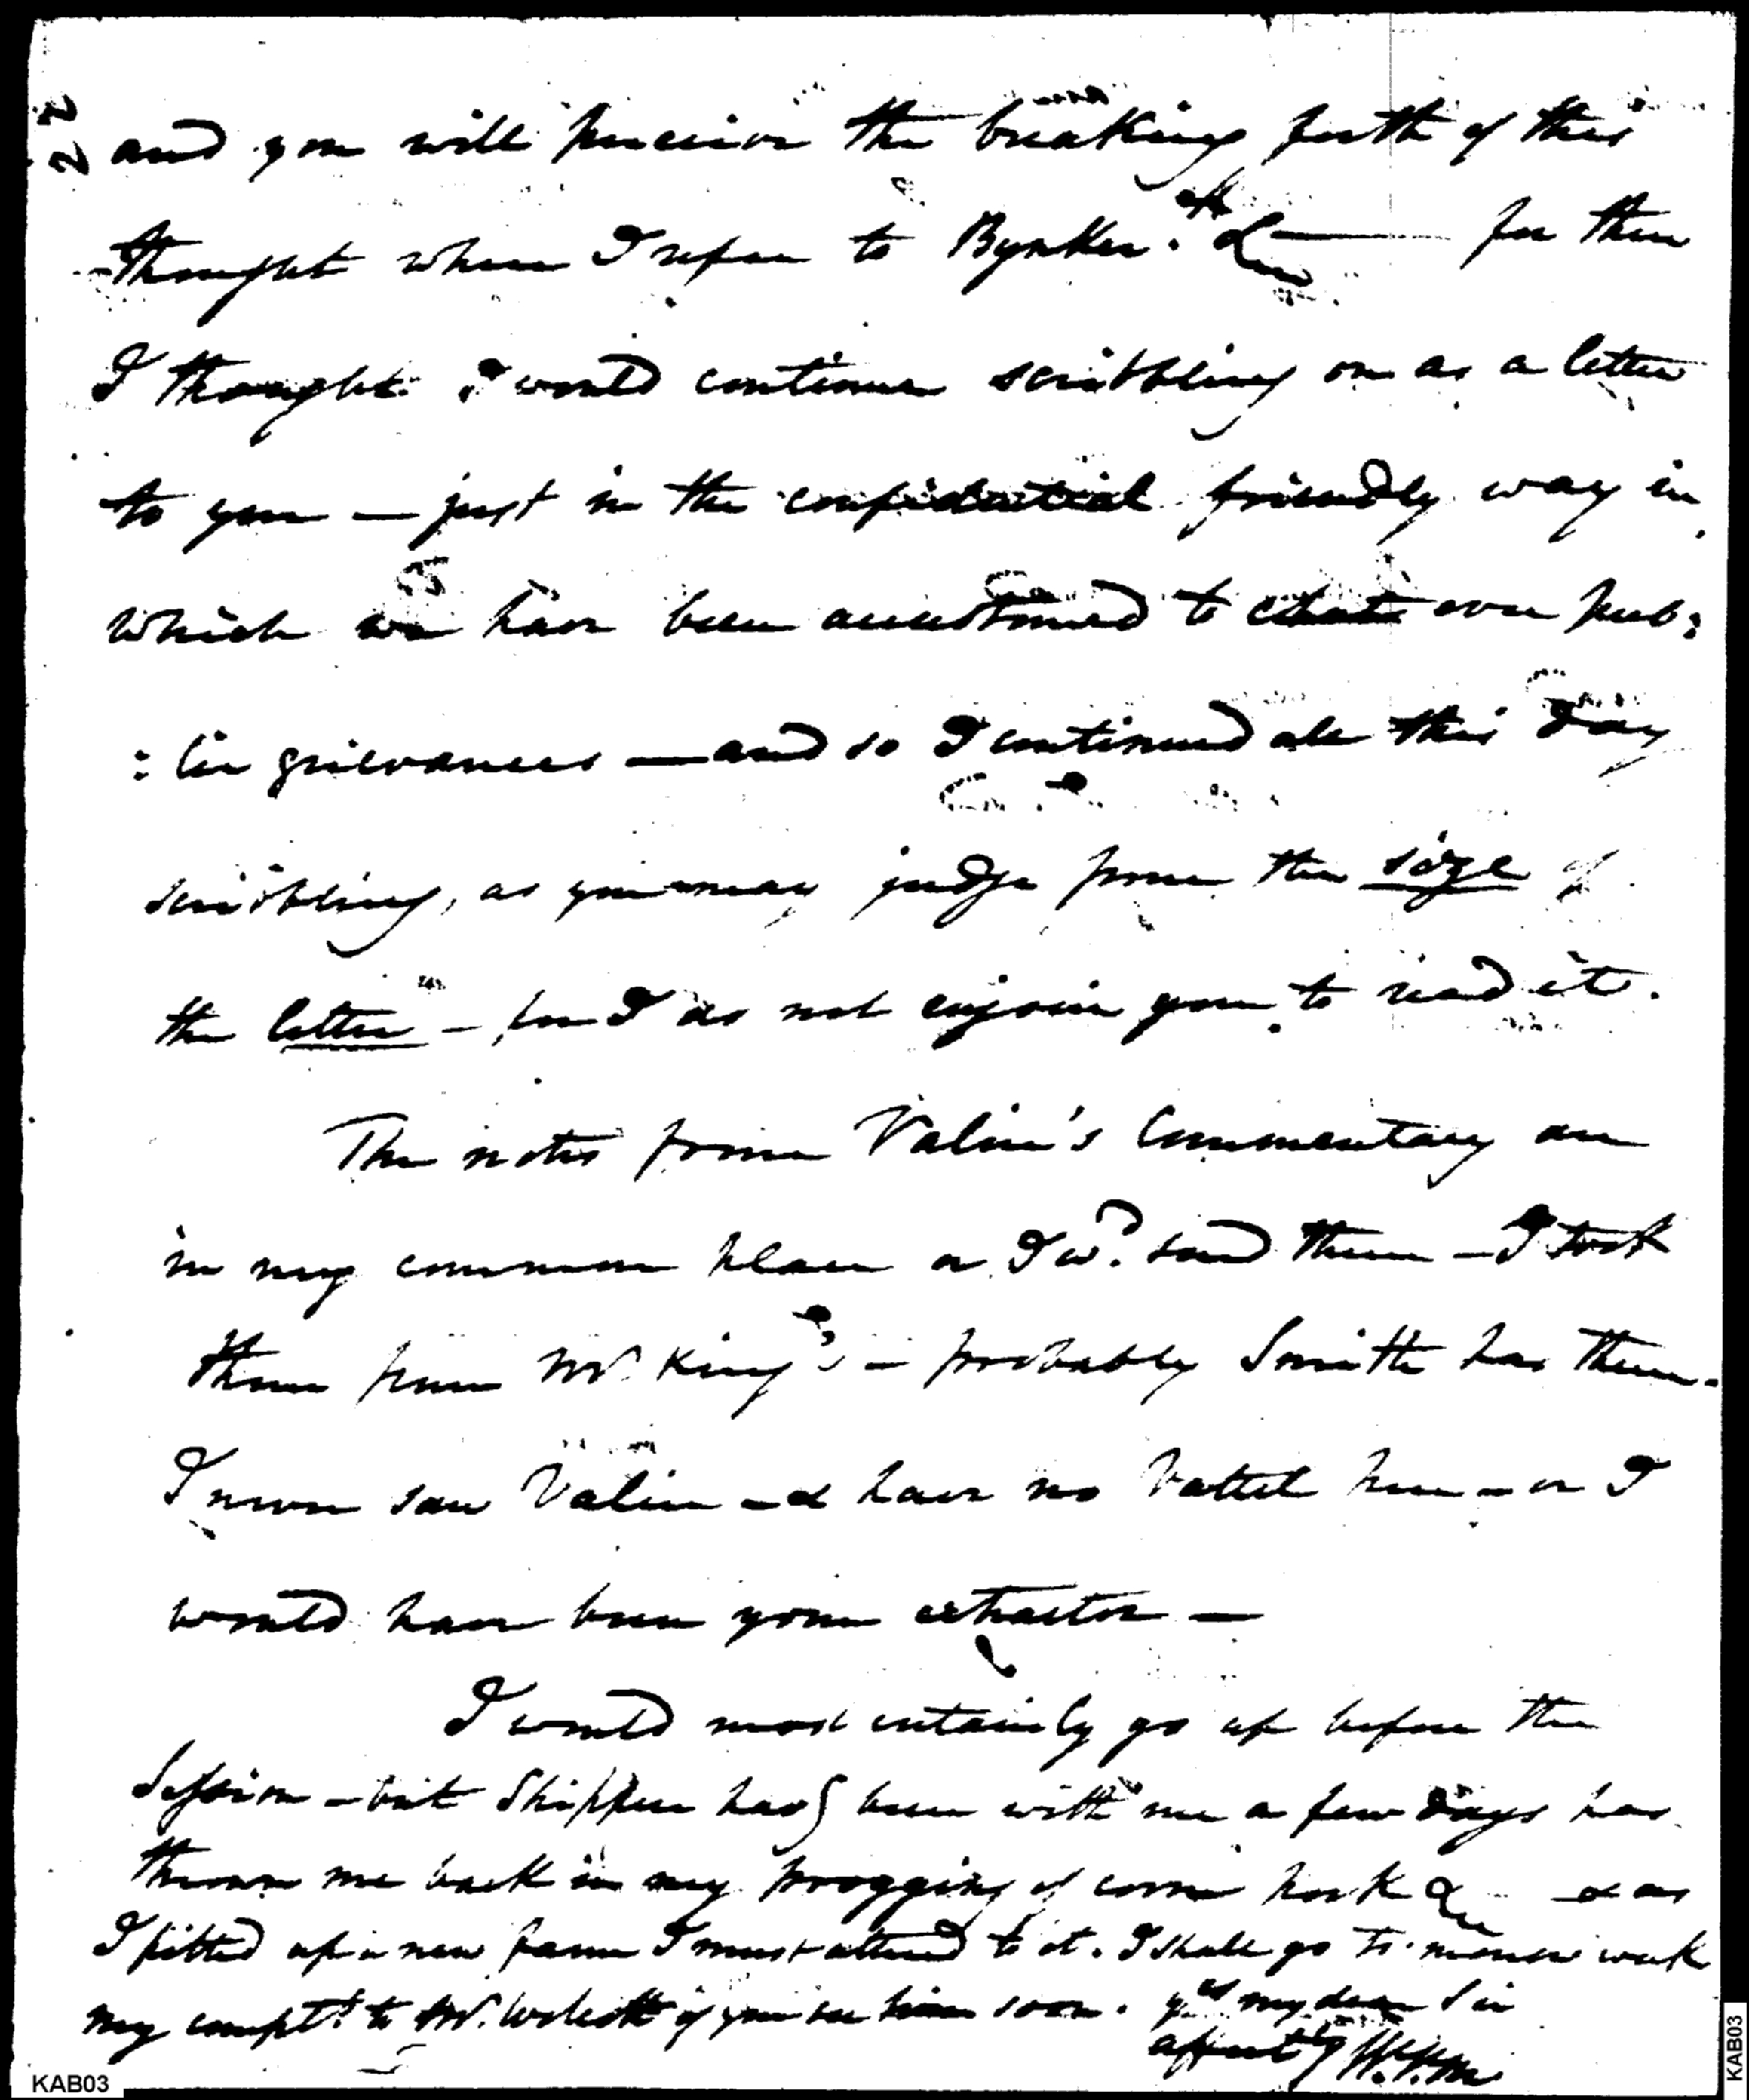 22
and you will perceive the breaking forth of this
thought where I refer to Bynker. &c —— for then
I thought I would continue scribbling on as a letter
to you — just in the confidential friendly way in
which we have been accustomed to chat over pub:
:lic grievances — and so I continued all this day
scribbling, as you may judge from the size of
the letter — for I do not enjoin you to read it.
The notes from Valin's Commentary are
in my common place or I wd. send them — I took
them from Mr. King's — probably Smith has them.
I never saw Valin — & have no Vattel here — or I
would have been your extractor —
I would most certainly go up before the
Session — but Shippen has been with me a few days has
thrown me back in my progging of corn pork &c — & as
I fitted up a new farm I must attend to it. I shall go to-morrow week
my complts. to Mr. Wolcott if you see him soon. yrs my dear Sir
affectly W.V.M.
KAB03
KAB03